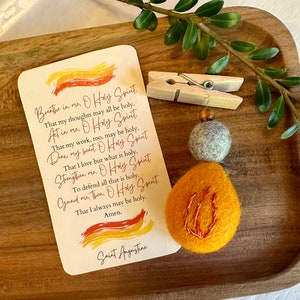 Breathe in me, O Holy Spirit,
That my thoughts may all be holy,
Act in me, O Holy Spirit,
That my work, too, may be holy,
Draw my heart, O Holy Spirit,
That I love but what is holy,
Strengthen me, O Holy Spirit,
To defend all that is holy,
Guard me, then, O Holy Spirit,
That I always may be holy,
Amen.
Saint Augustine